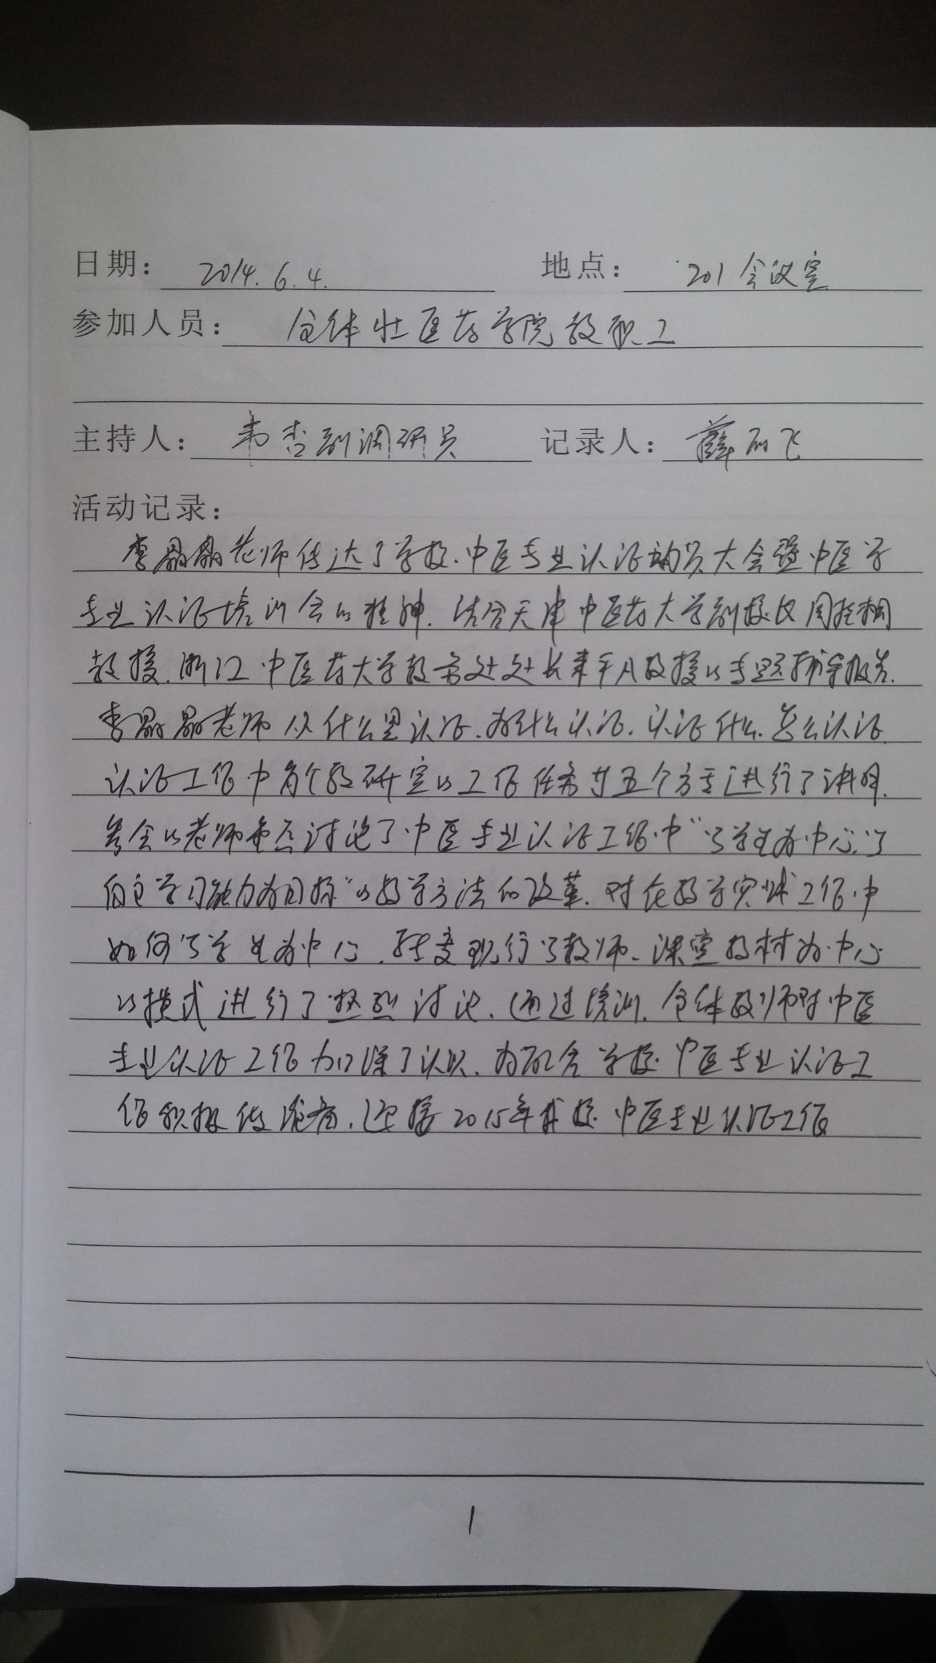 日期: 2014.6.4. 地点: 201会议室
参加人员: 全体壮医药学院教职工
主持人: 韦 副调研员 记录人: 薛丽飞
活动记录:
李晶晶老师传达了学校.中医专业认证动员大会暨中医学
专业认证培训会的精神.结合天津中医药大学副校长周桂桐
教授.浙江中医药大学教务处处长来平凡教授的专题辅导报告.
李晶晶老师从什么是认证.为什么认证.认证什么.怎么认证.
认证工作中各个教研室的工作任务等五个方面进行了讲明.
参会的老师重点讨论了中医专业认证工作中“以学生为中心”以
自主学习能力为目标”的教学方法的改革.对在教学实践工作中
如何以学生为中心.转变现行以教师、课堂教材为中心
的模式进行了热烈讨论.通过培训.全体教师对中医
专业认证工作加深了认识.为配合学校中医专业认证工
作积极做准备.迎接2015年我校中医专业认证工作
1